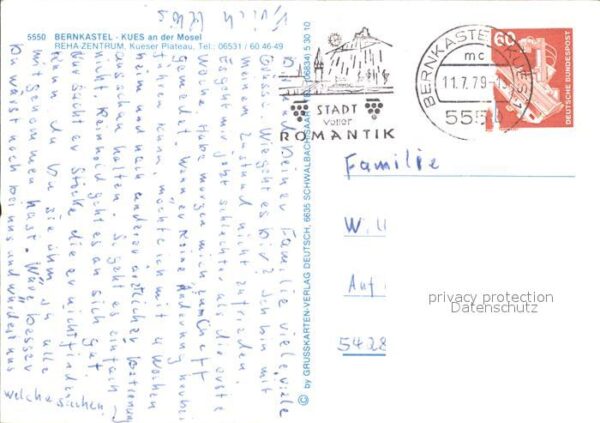 5550 BERNKASTEL - KUES an der Mosel
REHA-ZENTRUM, Kueser Plateau, Tel.: 06531 / 60 46 49
Dir u. Deiner Familie viele, viele
Grüsse. Wie geht es Dir? Ich bin mit
meinem Zustand nicht zufrieden.
Es geht mir jetzt schlechter als die erste
Woche. Habe morgen mich zum Chef
gemeldet. Wenn er keine Änderung herbei
führen kann, möchte ich mit 4 Wochen
heim und nach anderer ärztlicher Betreuung
ausschau halten. So geht es einfach
nicht. Reinhold geht es an sich gut.
Nur sucht er Stöcke die er nicht findet
denn, da Du sie ihm ja alle
mitgenommen hast. Wäre besser
Du wärst noch bei uns und würdest uns
welche suchen
© by GRUSSKARTEN-VERLAG DEUTSCH, 6635 SCHWALBACH/SAAR (06834) 5 30 10
STADT
voller
ROMANTIK
BERNKASTEL-KUES 1
mc
11.7.79
5550
60
DEUTSCHE BUNDESPOST
Familie
Auf
5428
privacy protection
Datenschutz